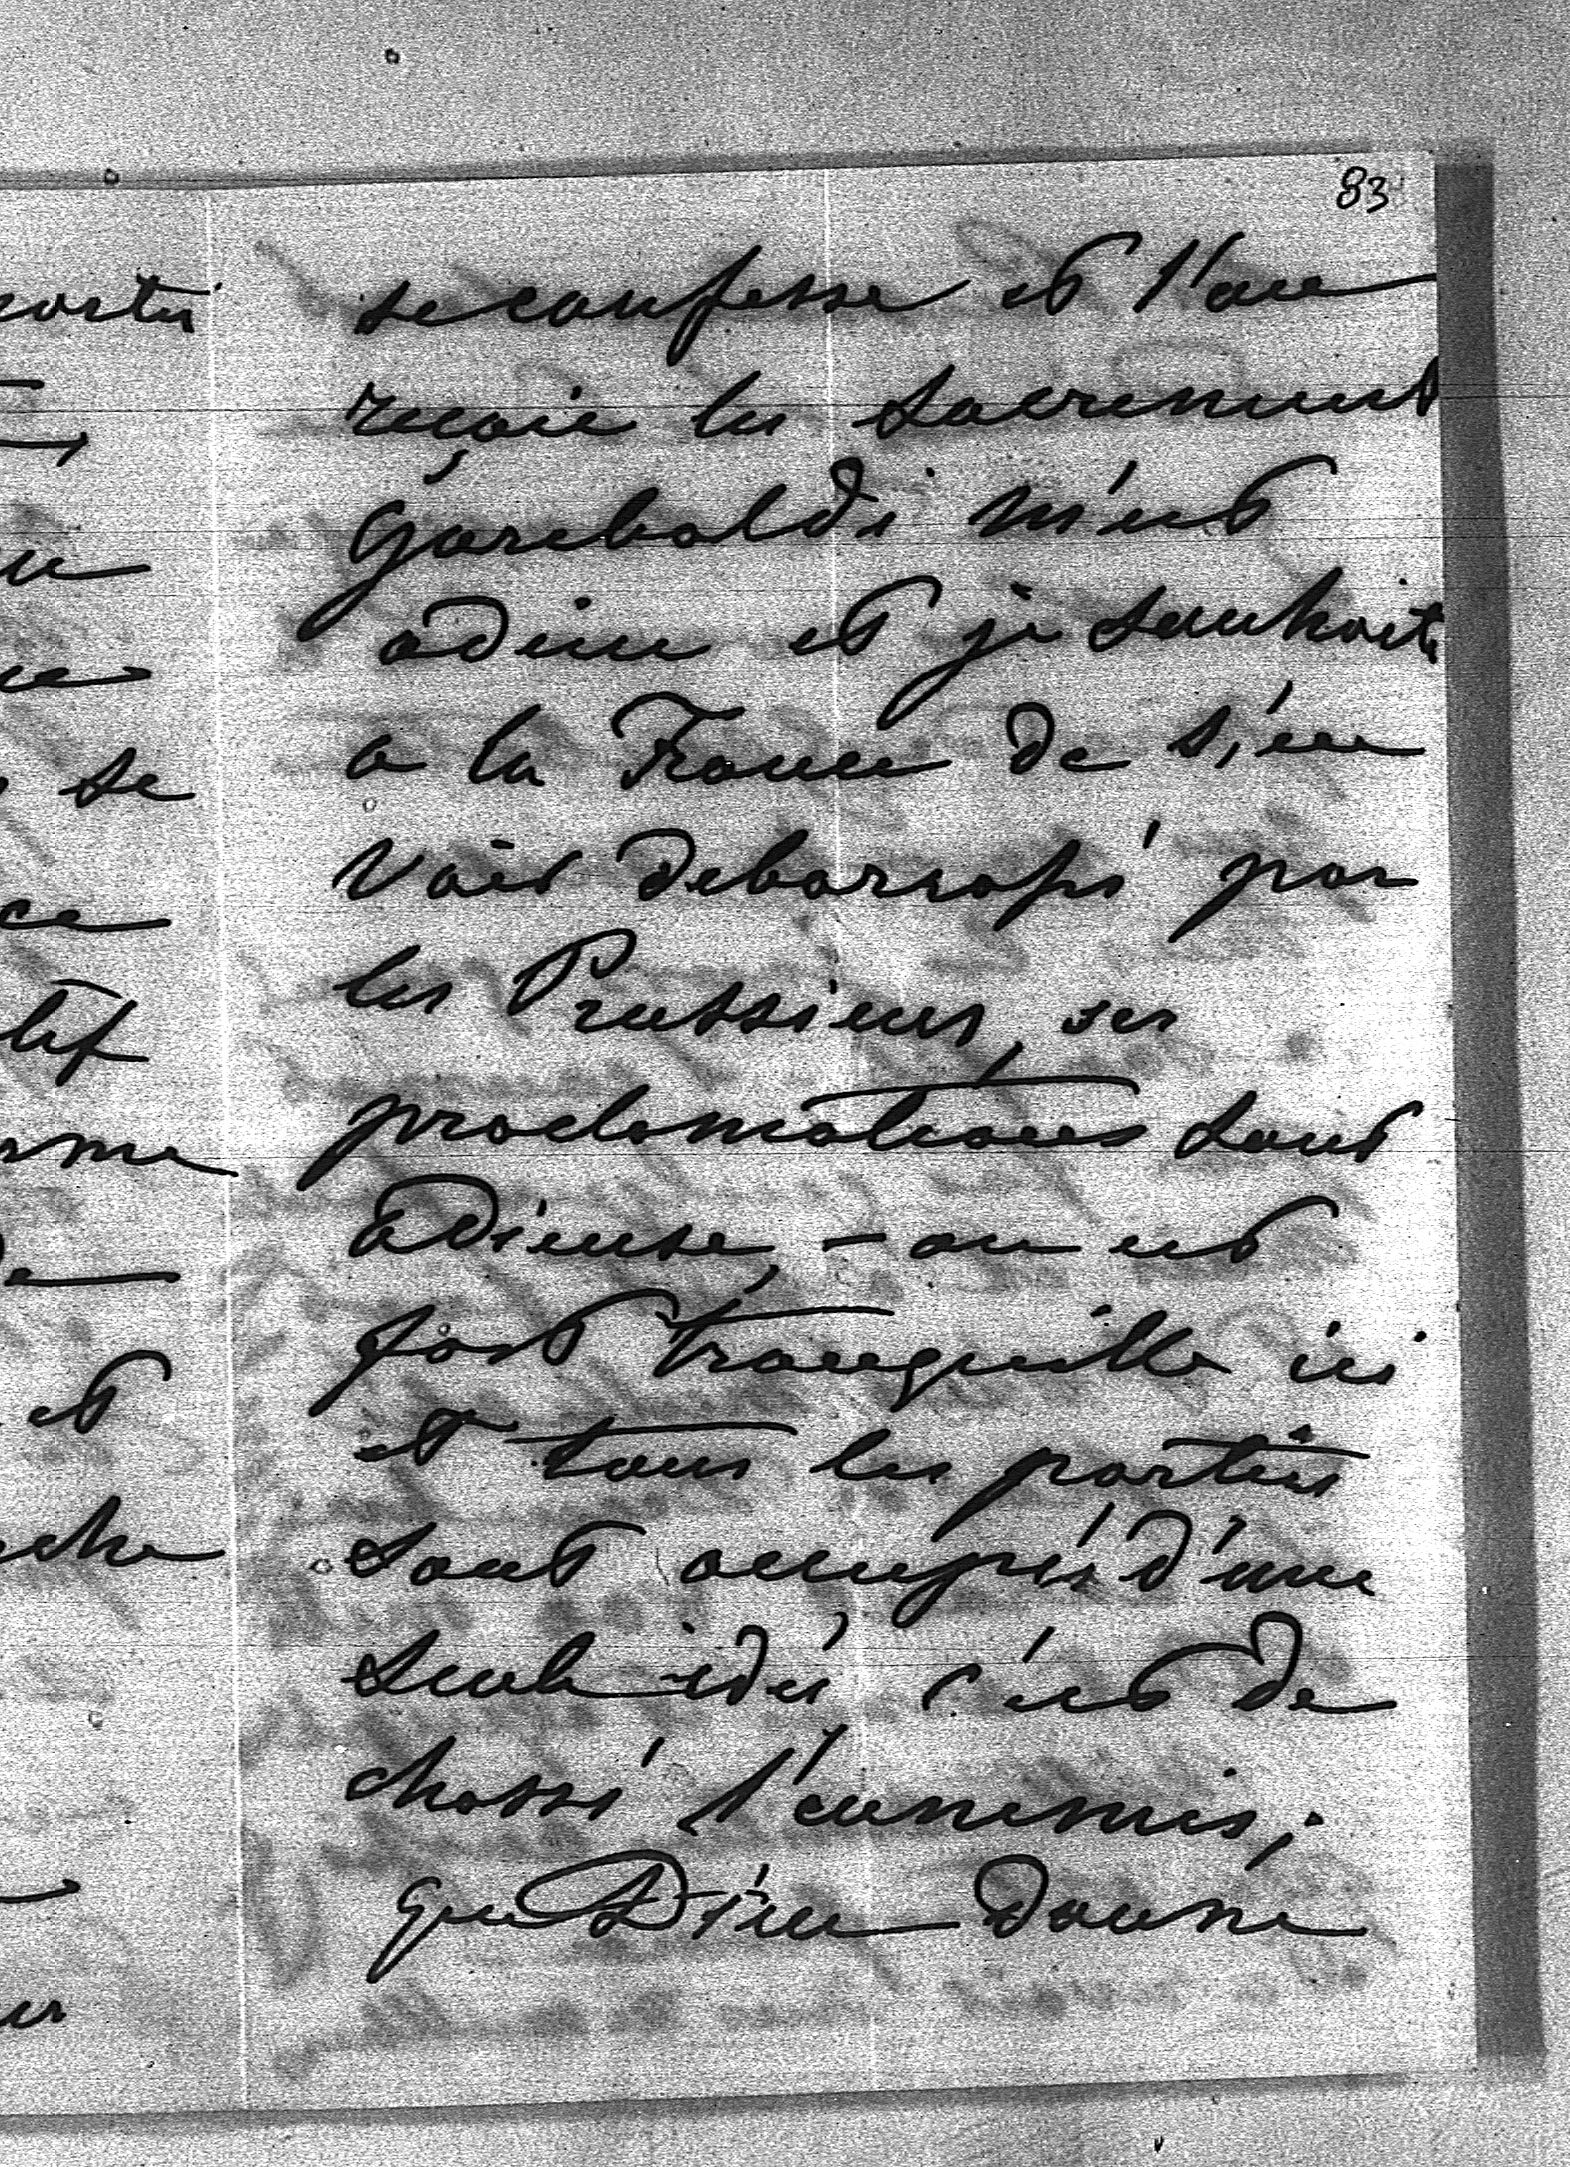 83
se confesse et l'on
reçoie les sacrement
Garibaldi m'est
odieu et je souhaite
a la France de s'en
voir debarrassé par
les Prussiens, ses
proclamations sont
odieuse, - on est
fort tranquille ici
et tous les parties
sont occupés d'une
seule idée, c'est de
chassé l'ennemis,
que Dieu donne
se
et